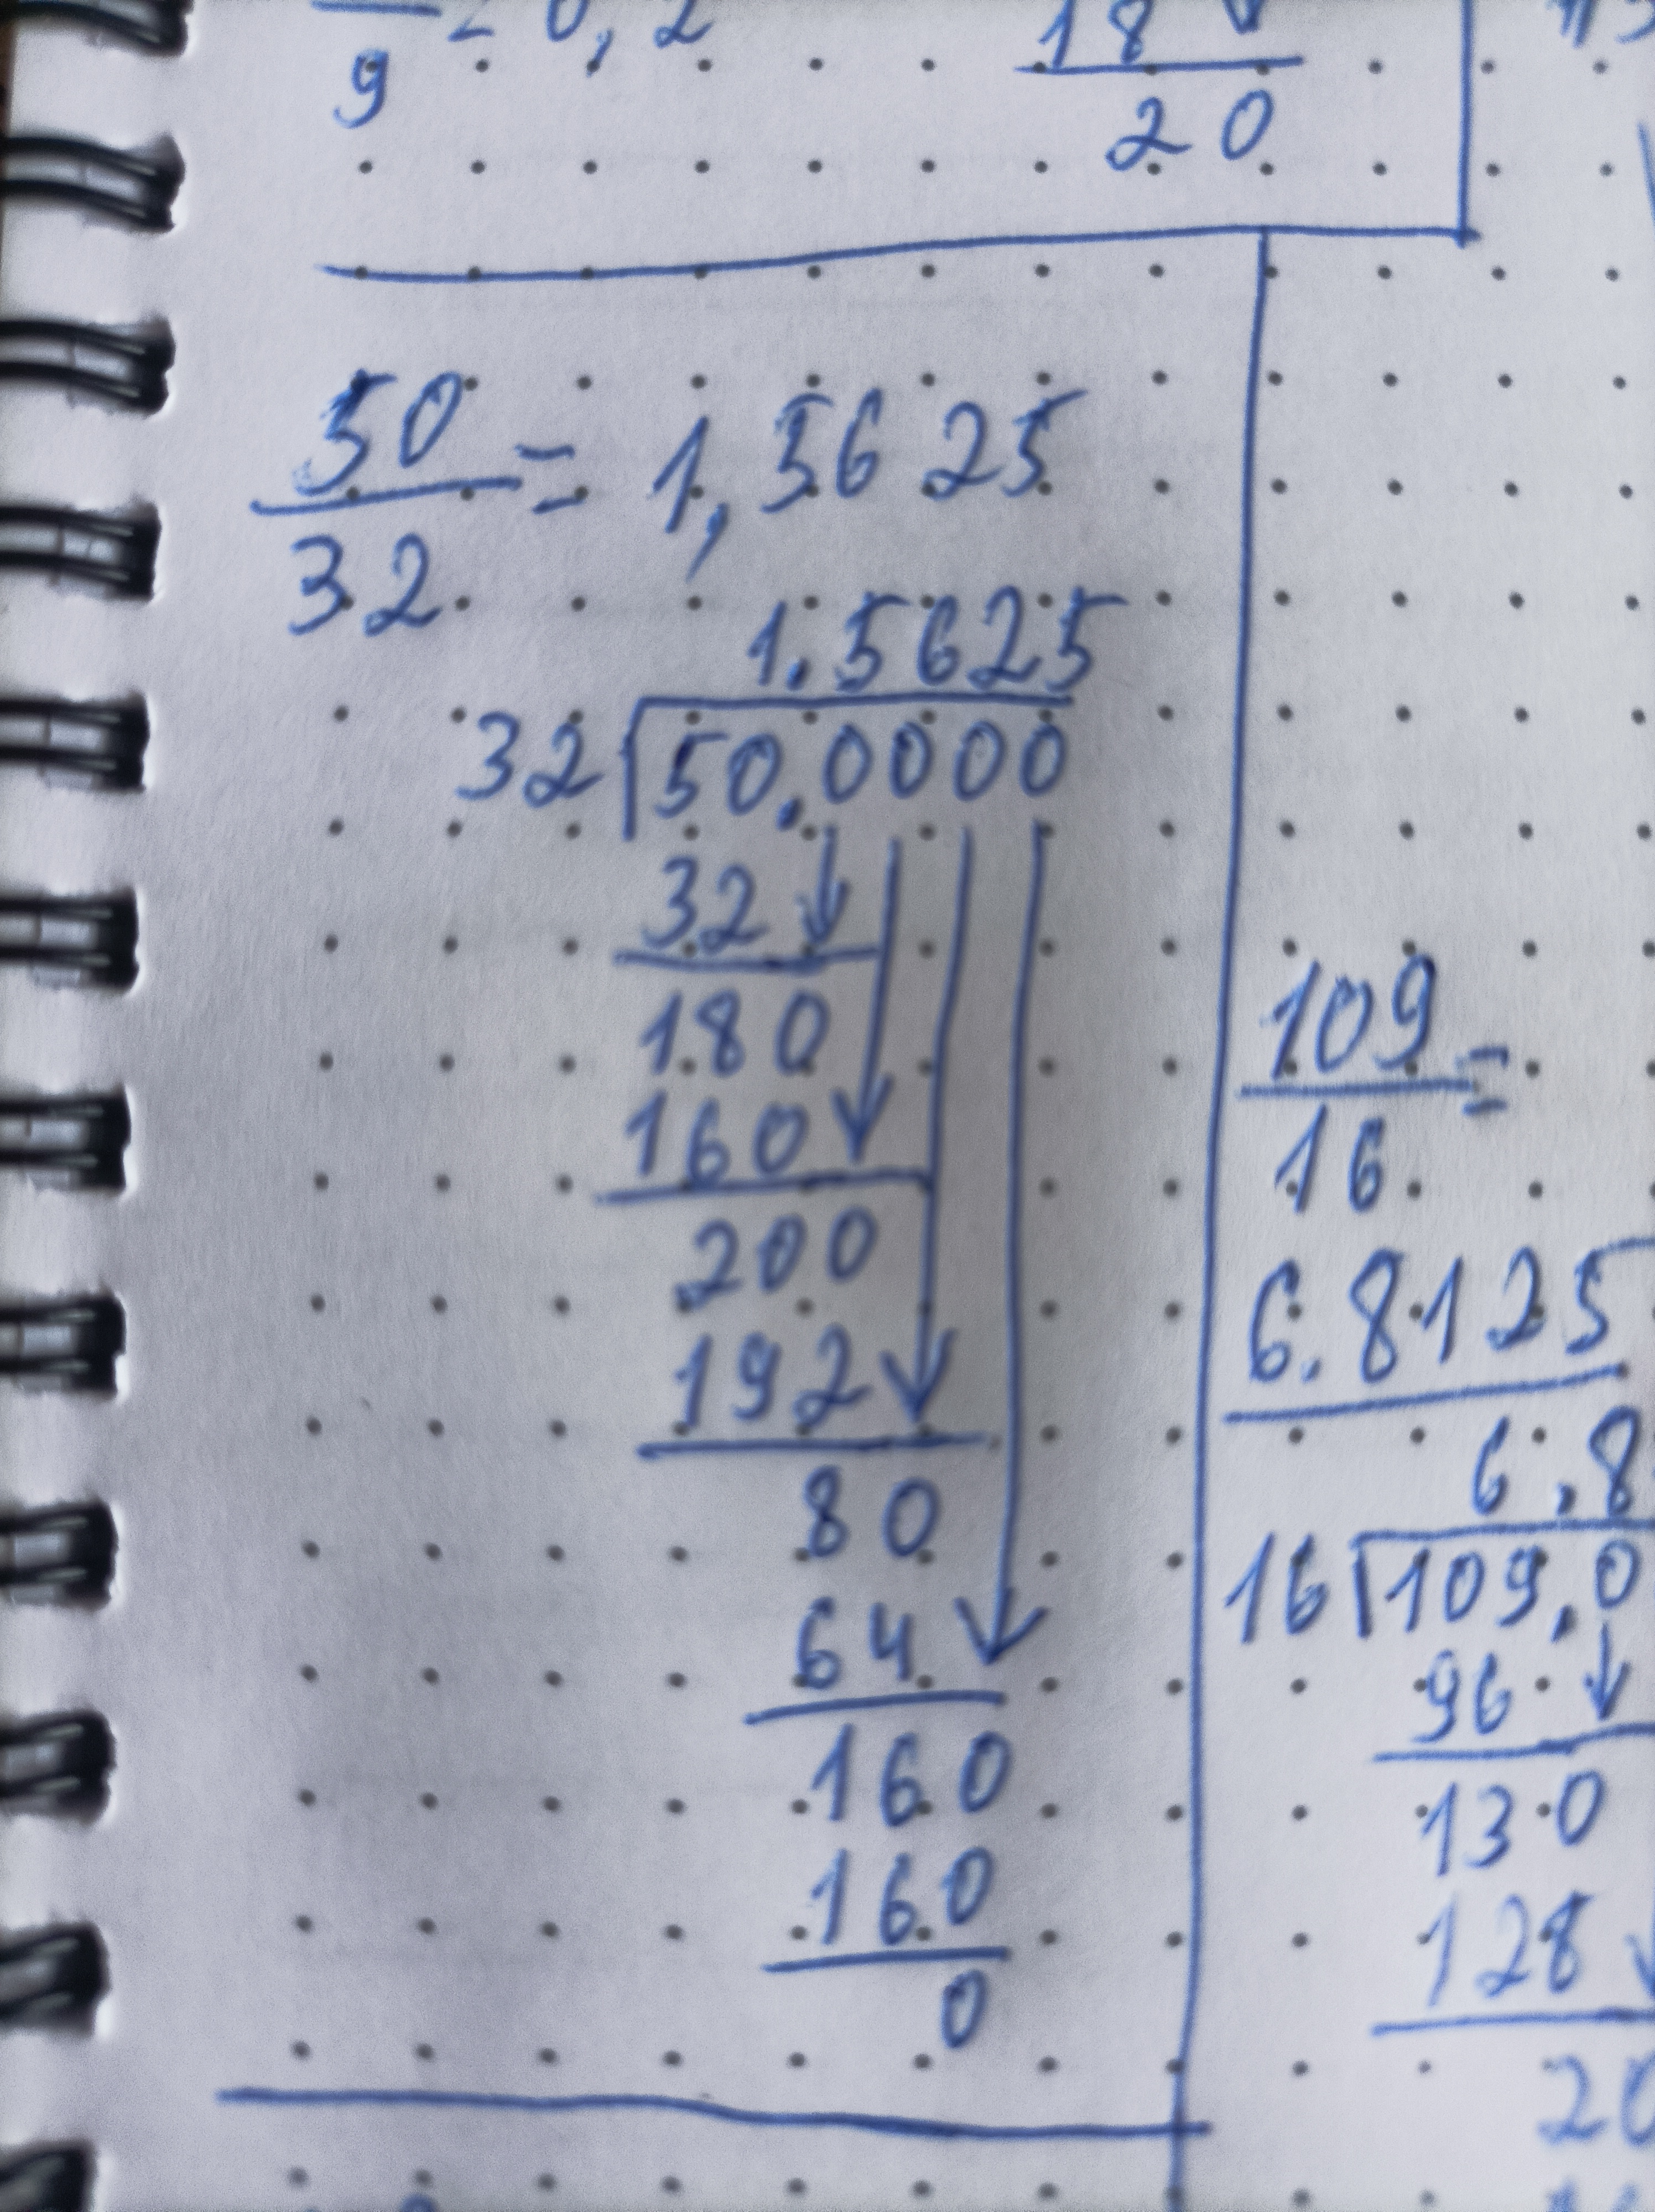 9 = 0,2
18
20
50
32 = 1,5625
1.5625
32 50.0000
32
180
160
200
192
80
64
160
160
0
109
16 =
6.8125
6.8
16 109.0
96
130
128
20